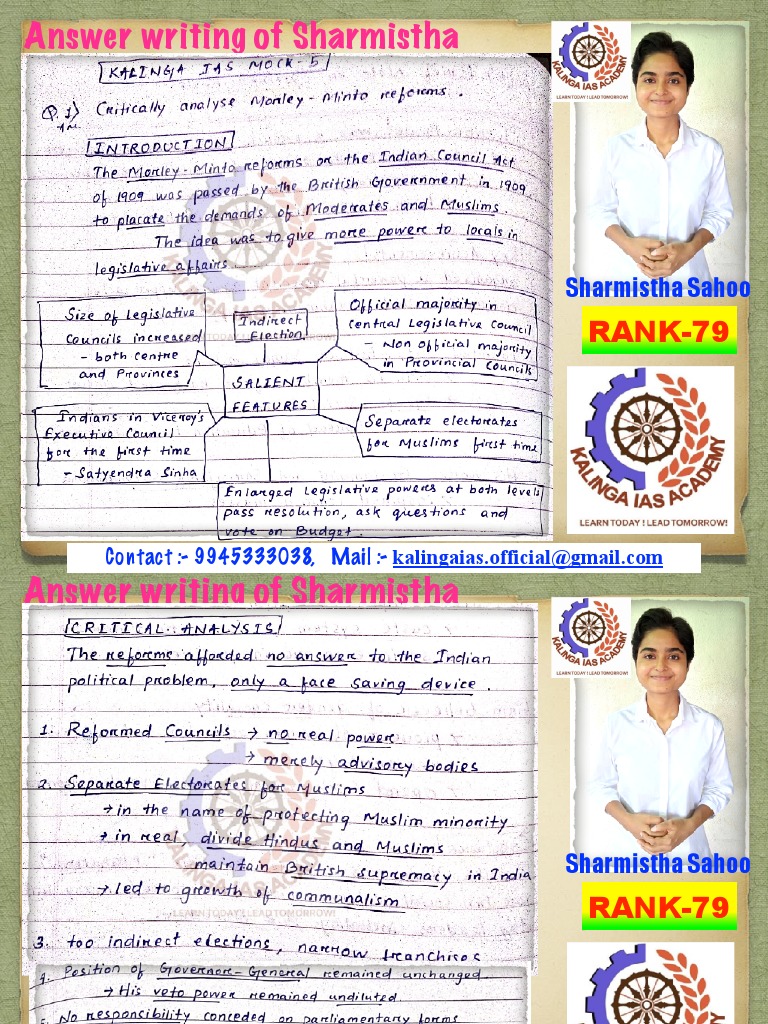 Answer writing of Sharmistha
KALINGA IAS ACADEMY
LEARN TODAY ! LEAD TOMORROW!
KALINGA IAS MOCK-5
Q.1) Critically analyse Morley-Minto reforms.
Ans.
INTRODUCTION
The Morley-Minto reforms or the Indian Council Act
of 1909 was passed by the British Government in 1909
to placate the demands of Moderates and Muslims.
The idea was to give more power to locals in
legislative affairs.
Size of Legislative
Councils increased
- both centre
and Provinces
Indirect
Election
Official majority in
Central Legislative Council
- Non official majority
in Provincial Councils
SALIENT
FEATURES
Indians in Viceroy's
Executive Council
for the first time
- Satyendra Sinha
Separate electorates
for Muslims first time
Enlarged Legislative powers at both levels
pass resolution, ask questions and
vote on Budget.
KALINGA IAS ACADEMY
Sharmistha Sahoo
RANK-79
KALINGA IAS ACADEMY
LEARN TODAY ! LEAD TOMORROW!
Contact :- 9945333038, Mail :- kalingaias.official@gmail.com
Answer writing of Sharmistha
KALINGA IAS ACADEMY
LEARN TODAY ! LEAD TOMORROW!
CRITICAL ANALYSIS
The reforms afforded no answer to the Indian
political problem, only a face saving device.
1. Reformed Councils → no real power
→ merely advisory bodies
2. Separate Electorates for Muslims
→ in the name of protecting Muslim minority
→ in real divide Hindus and Muslims
maintain British supremacy in India
→ led to growth of communalism
KALINGA IAS ACADEMY
LEARN TODAY ! LEAD TOMORROW!
3. too indirect elections, narrow franchises
4. Position of Governor-General remained unchanged
→ His veto power remained undiluted.
5. No responsibility conceded on parliamentary forms
Sharmistha Sahoo
RANK-79